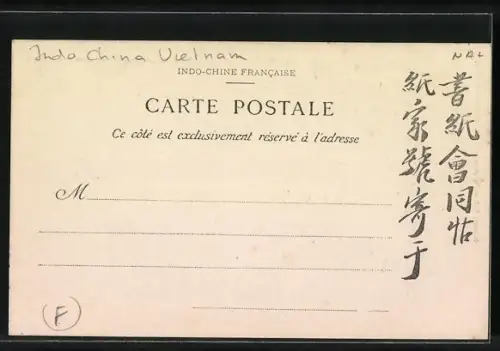 Indo China Vietnam
INDO-CHINE FRANÇAISE
CARTE POSTALE
Ce côté est exclusivement réservé à l'adresse
M
書紙會同帖
紙家號寄于
F